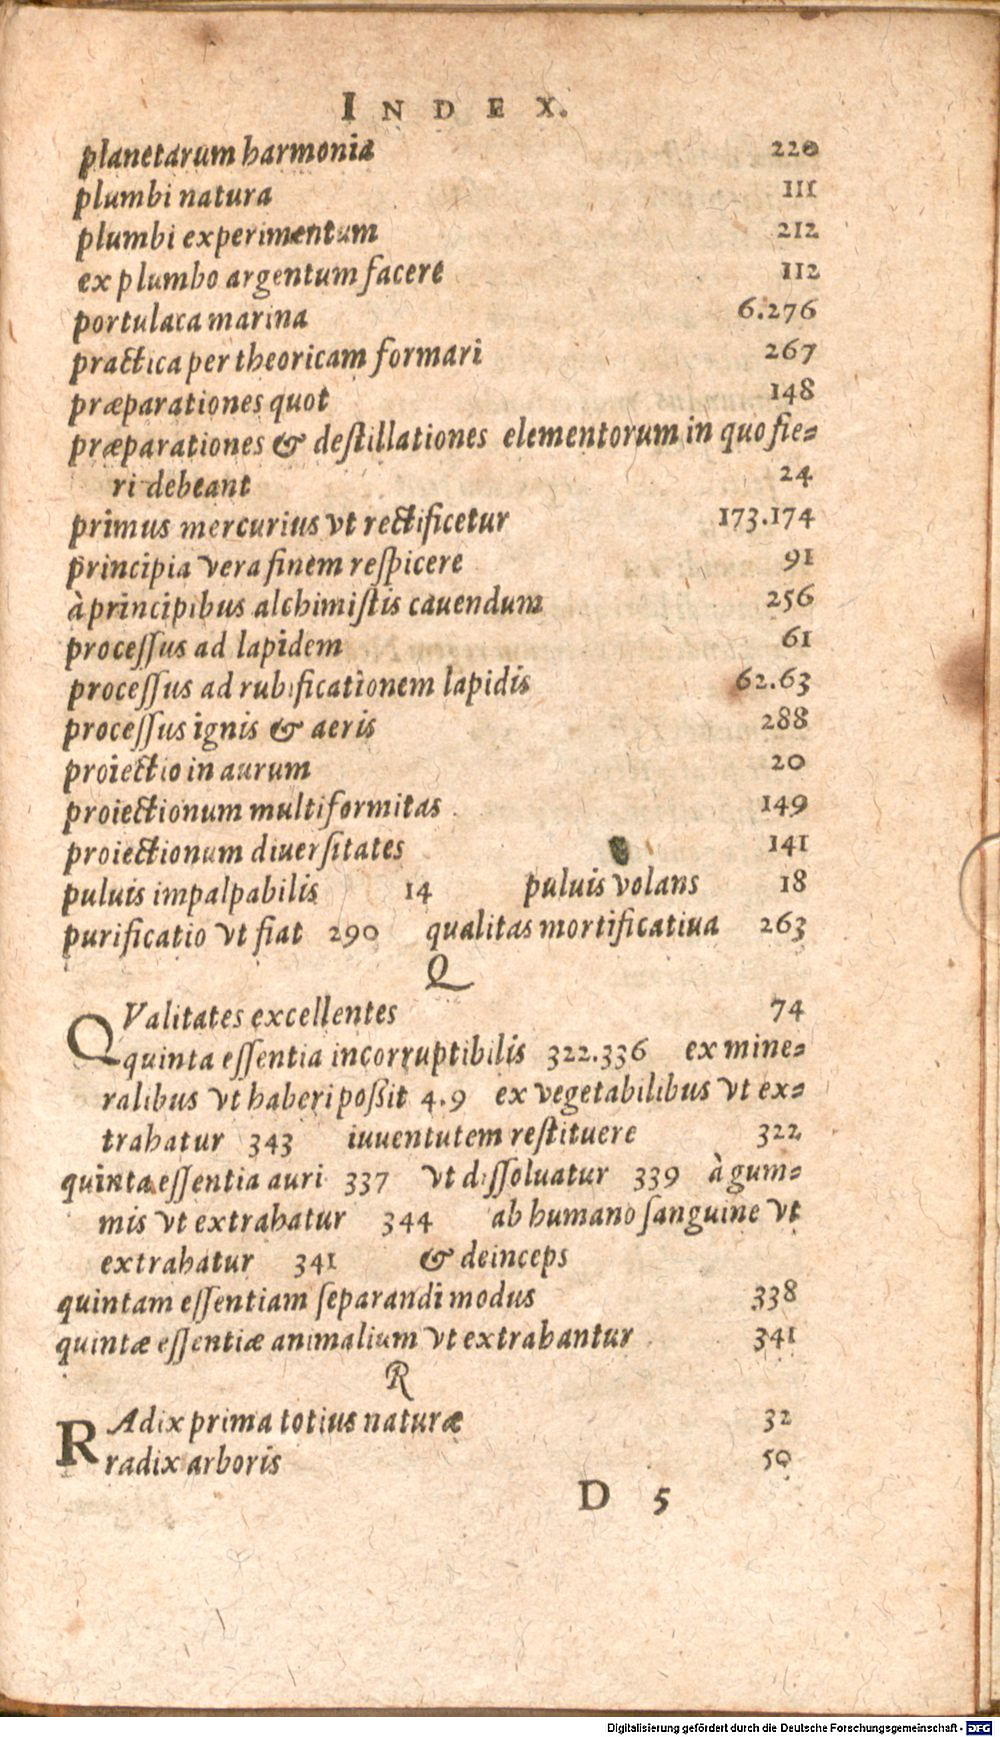 INDEX.
planetarum harmonia 220
plumbi natura 111
plumbi experimentum 212
ex plumbo argentum facere 112
portulaca marina 6.276
practica per theoricam formari 267
præparationes quot 148
præparationes & deſtillationes elementorum in quo fie-
ri debeant 24
primus mercurius vt rectificetur 173.174
principia vera finem reſpicere 91
à principibus alchimiſtis cauendum 256
proceſſus ad lapidem 61
proceſſus ad rubificationem lapidis 62.63
proceſſus ignis & aeris 288
proiectio in aurum 20
proiectionum multiformitas 149
proiectionum diuerſitates 141
puluis impalpabilis 14 puluis volans 18
purificatio vt fiat 290 qualitas mortificatiua 263
Q
QValitates excellentes 74
quinta eſſentia incorruptibilis 322.336 ex mine-
ralibus vt haberi poßit 4.9 ex vegetabilibus vt ex-
trahatur 343 iuuentutem reſtituere 322
quinta eſſentia auri 337 vt diſſoluatur 339 à gum-
mis vt extrahatur 344 ab humano ſanguine vt
extrahatur 341 & deinceps
quintam eſſentiam ſeparandi modus 338
quintæ eſſentiæ animalium vt extrahantur 341
R
RAdix prima totius naturæ 32
radix arboris 50
D 5
Digitalisierung gefördert durch die Deutsche Forschungsgemeinschaft - DFG